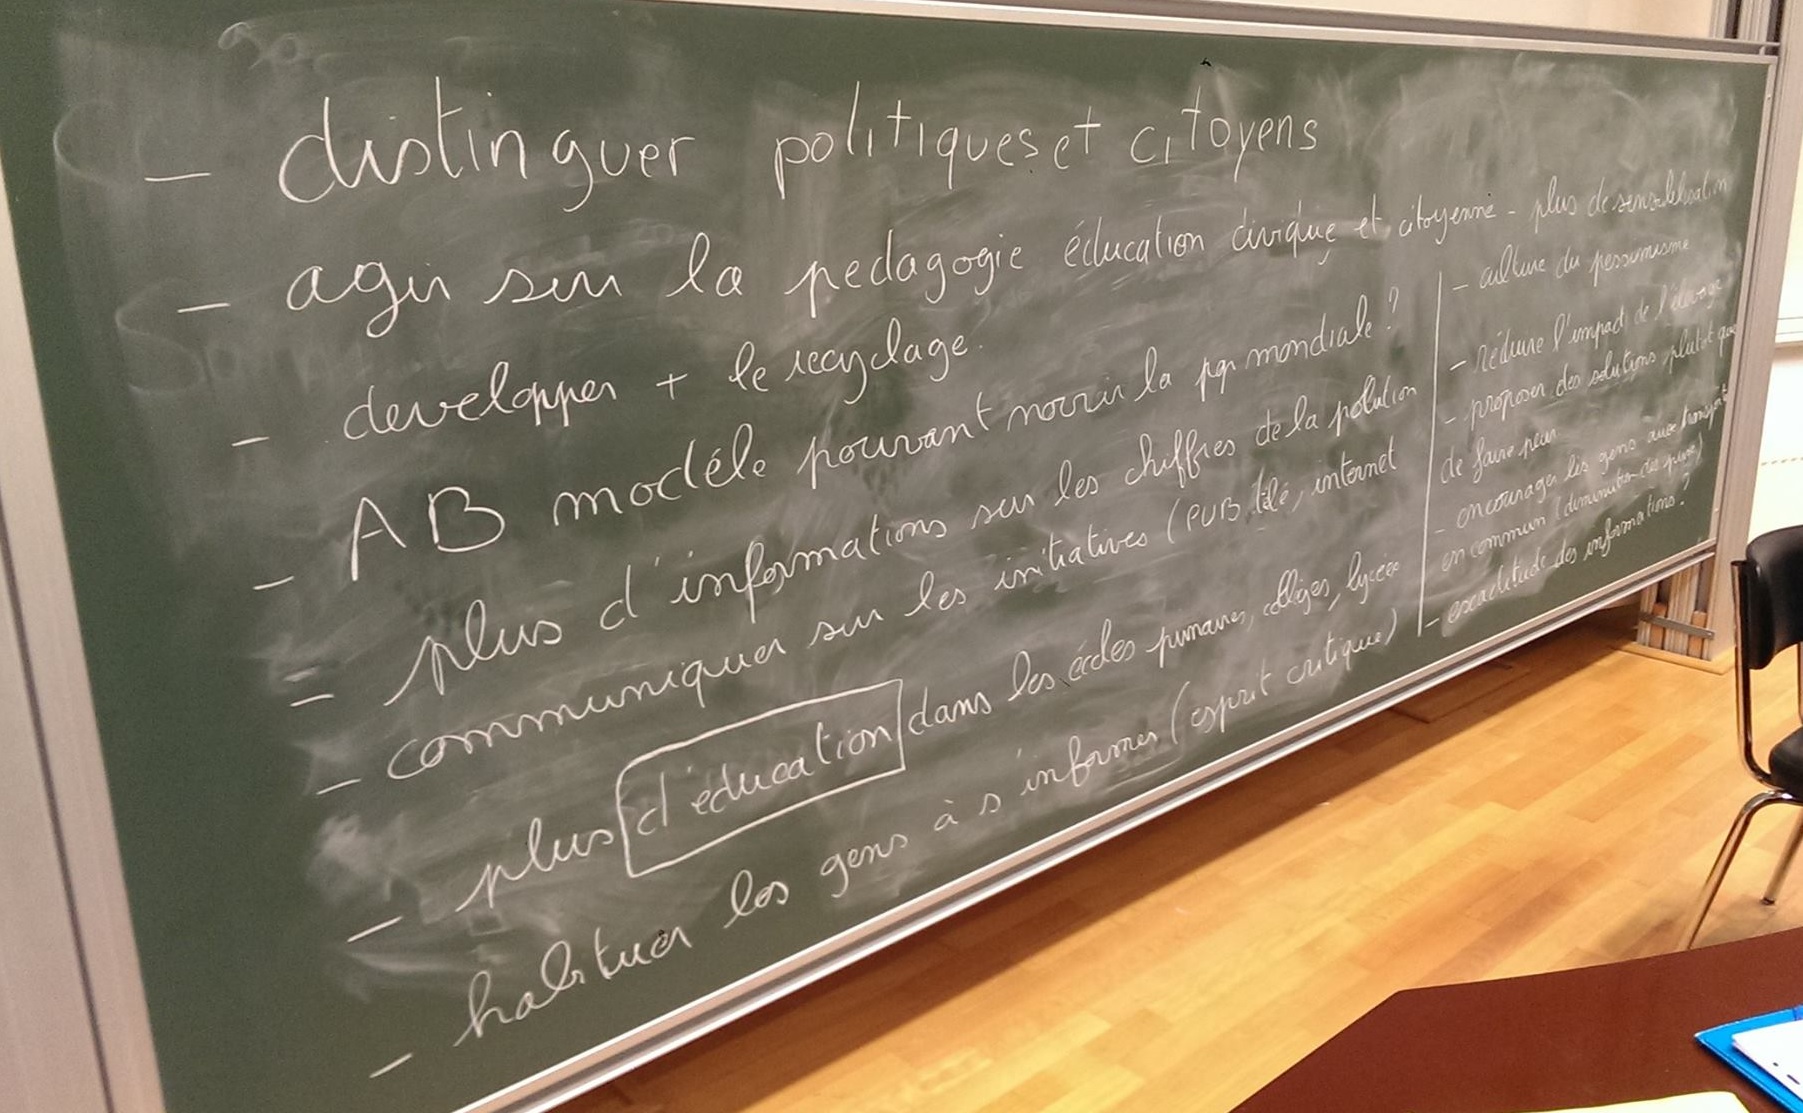 - distinguer politiques et citoyens
- agir sur la pedagogie éducation civique et citoyenne - plus de sensibilisation
- developper + le recyclage.
- AB modéle pouvant nourrir la pop mondiale ?
- plus d'informations sur les chiffres de la polution
- communiquer sur les initiatives (PUB, télé, internet
- plus d'éducation dans les écoles primaires, collèges, lycée
- habituer les gens à s'informer (esprit critique)
- culture du pessimisme
- réduire l'impact de l'élevage
- proposer des solutions plutôt que
de faire peur
- encourager les gens aux transport
en commun (diminution des
- exactitude des informations ?